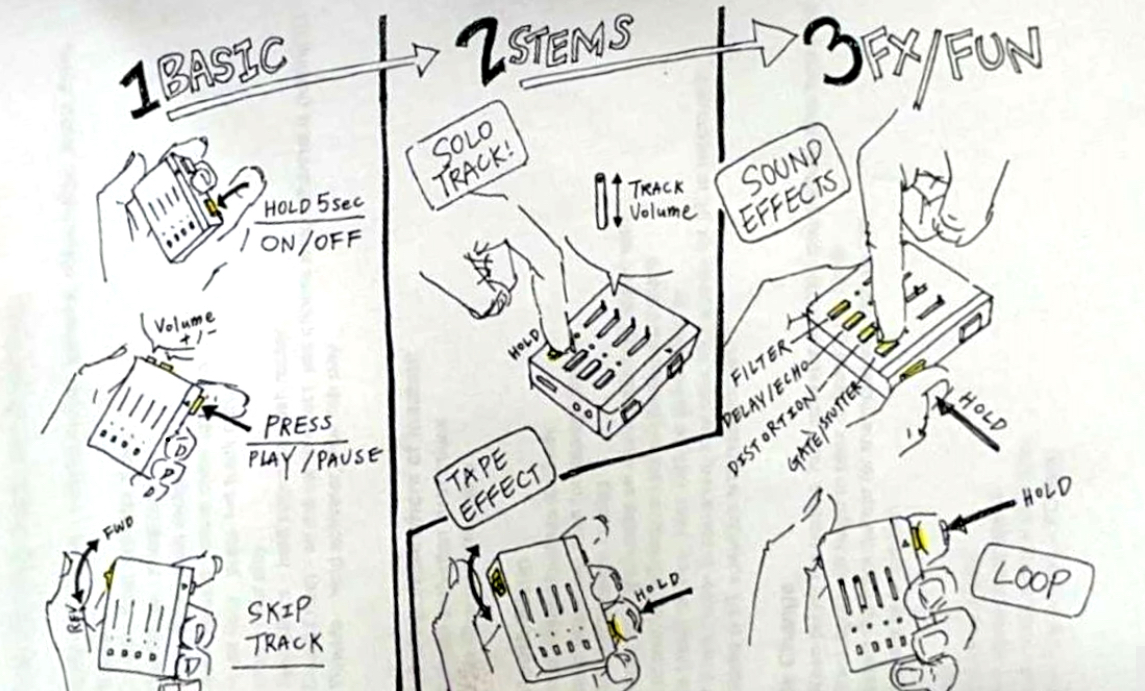 1 BASIC
HOLD 5sec
ON/OFF
Volume
+ -
PRESS
PLAY/PAUSE
FWD
REV
SKIP
TRACK
2 STEMS
SOLO
TRACK!
TRACK
Volume
HOLD
TAPE
EFFECT
HOLD
3 FX/FUN
SOUND
EFFECTS
FILTER
DELAY/ECHO
DISTORTION
GATE/STUTTER
HOLD
HOLD
LOOP